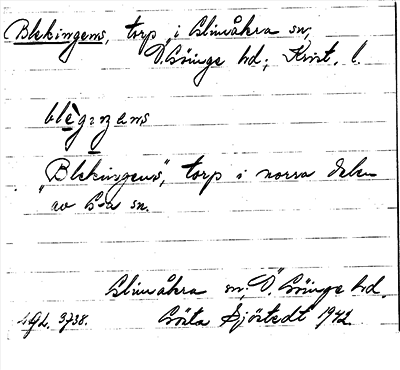 Blekingens, torp i Glimåkra sn,
Ö. Göinge hd; Krist. l.
blègingens
"Blekingens", torp i norra delen
av G-a sn.
Glimåkra sn, Ö. Göinge hd.
3738. Gösta Sjöstedt 1942.